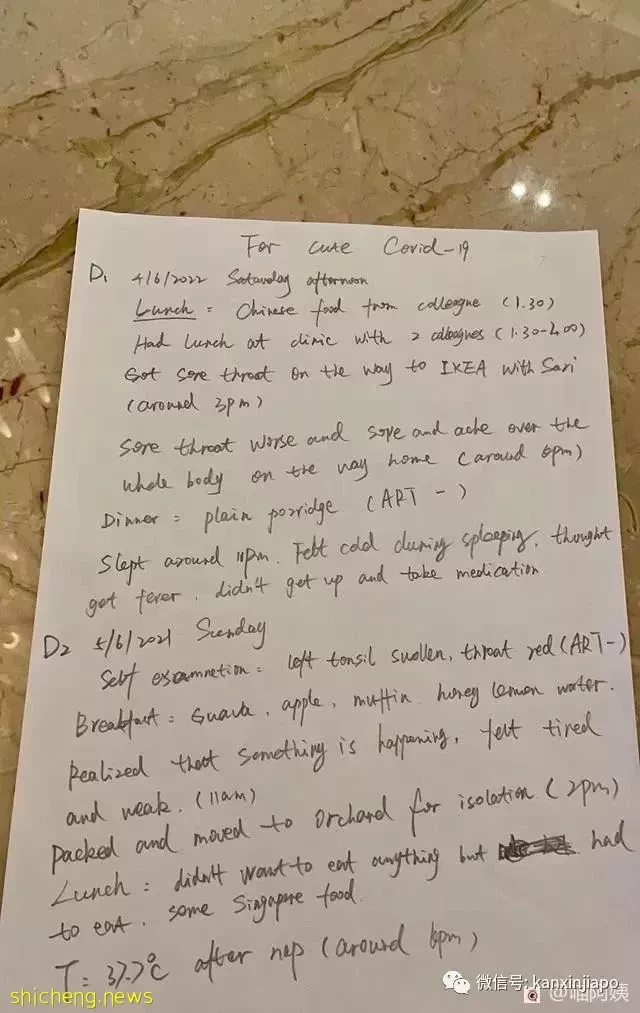 For cute Covid-19
D1 4/6/2022 Saturday afternoon
Lunch = Chinese food from colleague (1.30)
Had lunch at clinic with 2 colleagues (1.30-2.00)
Got sore throat on the way to IKEA with Sari
(around 3pm)
Sore throat worse and sore and ache over the
whole body on the way home (around 6pm)
Dinner = plain porridge (ART -)
Slept around 11pm. Felt cold during spleeping, thought
got fever. didn't get up and take medication.
D2 5/6/2021 Sunday
Self examnetion = left tonsil swollen, throat red (ART-)
Breakfast = Guava, apple, muffin. honey lemon water.
Realized that something is happening, felt tired
and weak. (11am)
packed and moved to orchard for isolation. (2pm)
Lunch = didn't want to eat anything but had
to eat. some Singapore food.
T= 37.7°C after nap (around 6pm)
微信号: kanxinjiapo
shicheng.news
@喵阿姨